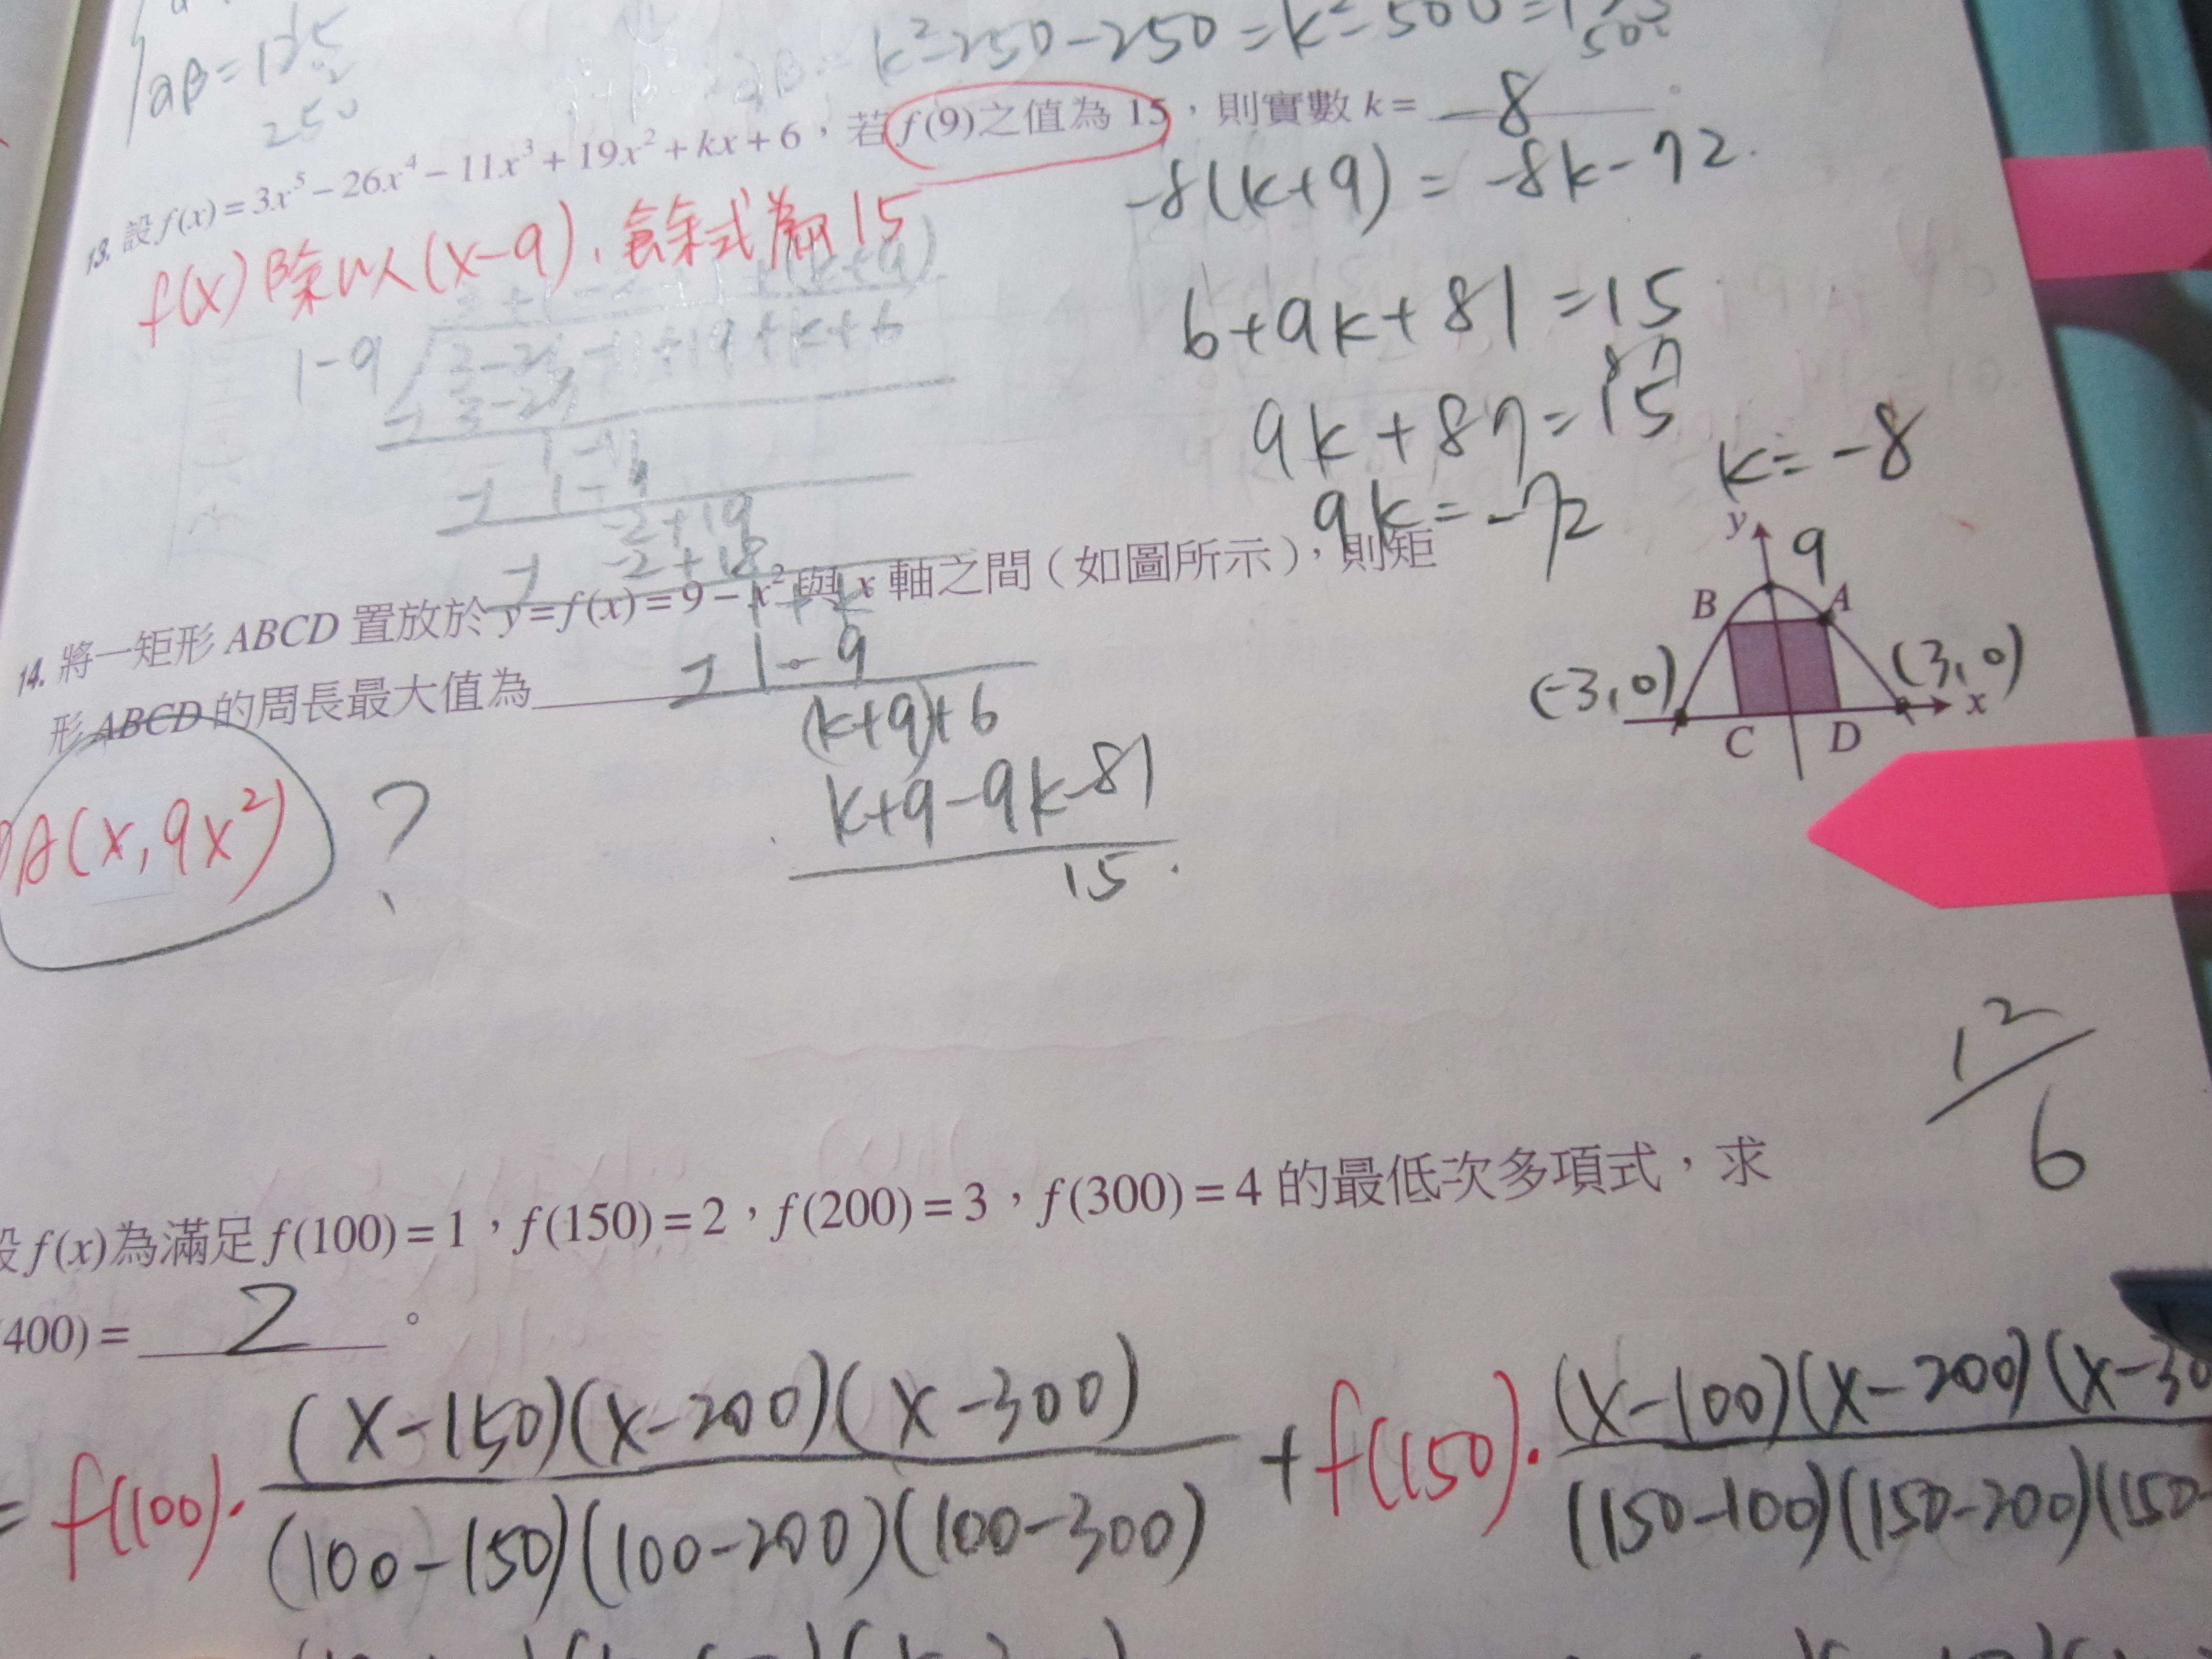 αβ=125
250
k²-250-250=k²-500=
500
13. 設 f(x)=3x⁵-26x⁴-11x³+19x²+kx+6，若 f(9)之值為 15，則實數 k= -8 。
f(x)除以(x-9)，餘式為15
-8(k+9)=-8k-72.
1-9
3-26-11+19+k+6
3-27
1-11
1-9
-2+19
-2+18
1+k
1-9
(k+9)+6
k+9-9k-81
15.
6+9k+81=15
87
9k+87=15
9k=-72
k=-8
14. 將一矩形 ABCD 置放於 y=f(x)=9-x² 與 x 軸之間（如圖所示），則矩
形 ABCD 的周長最大值為
y
9
B
A
(-3,0)
(3,0)
x
C
D
A(x,9x²)
?
12
6
設 f(x)為滿足 f(100)=1，f(150)=2，f(200)=3，f(300)=4 的最低次多項式，求
400)= 2 。
(x-150)(x-200)(x-300)
(x-100)(x-200)(x-30
= f(100)·
+f(150)·
(100-150)(100-200)(100-300)
(150-100)(150-200)(150-